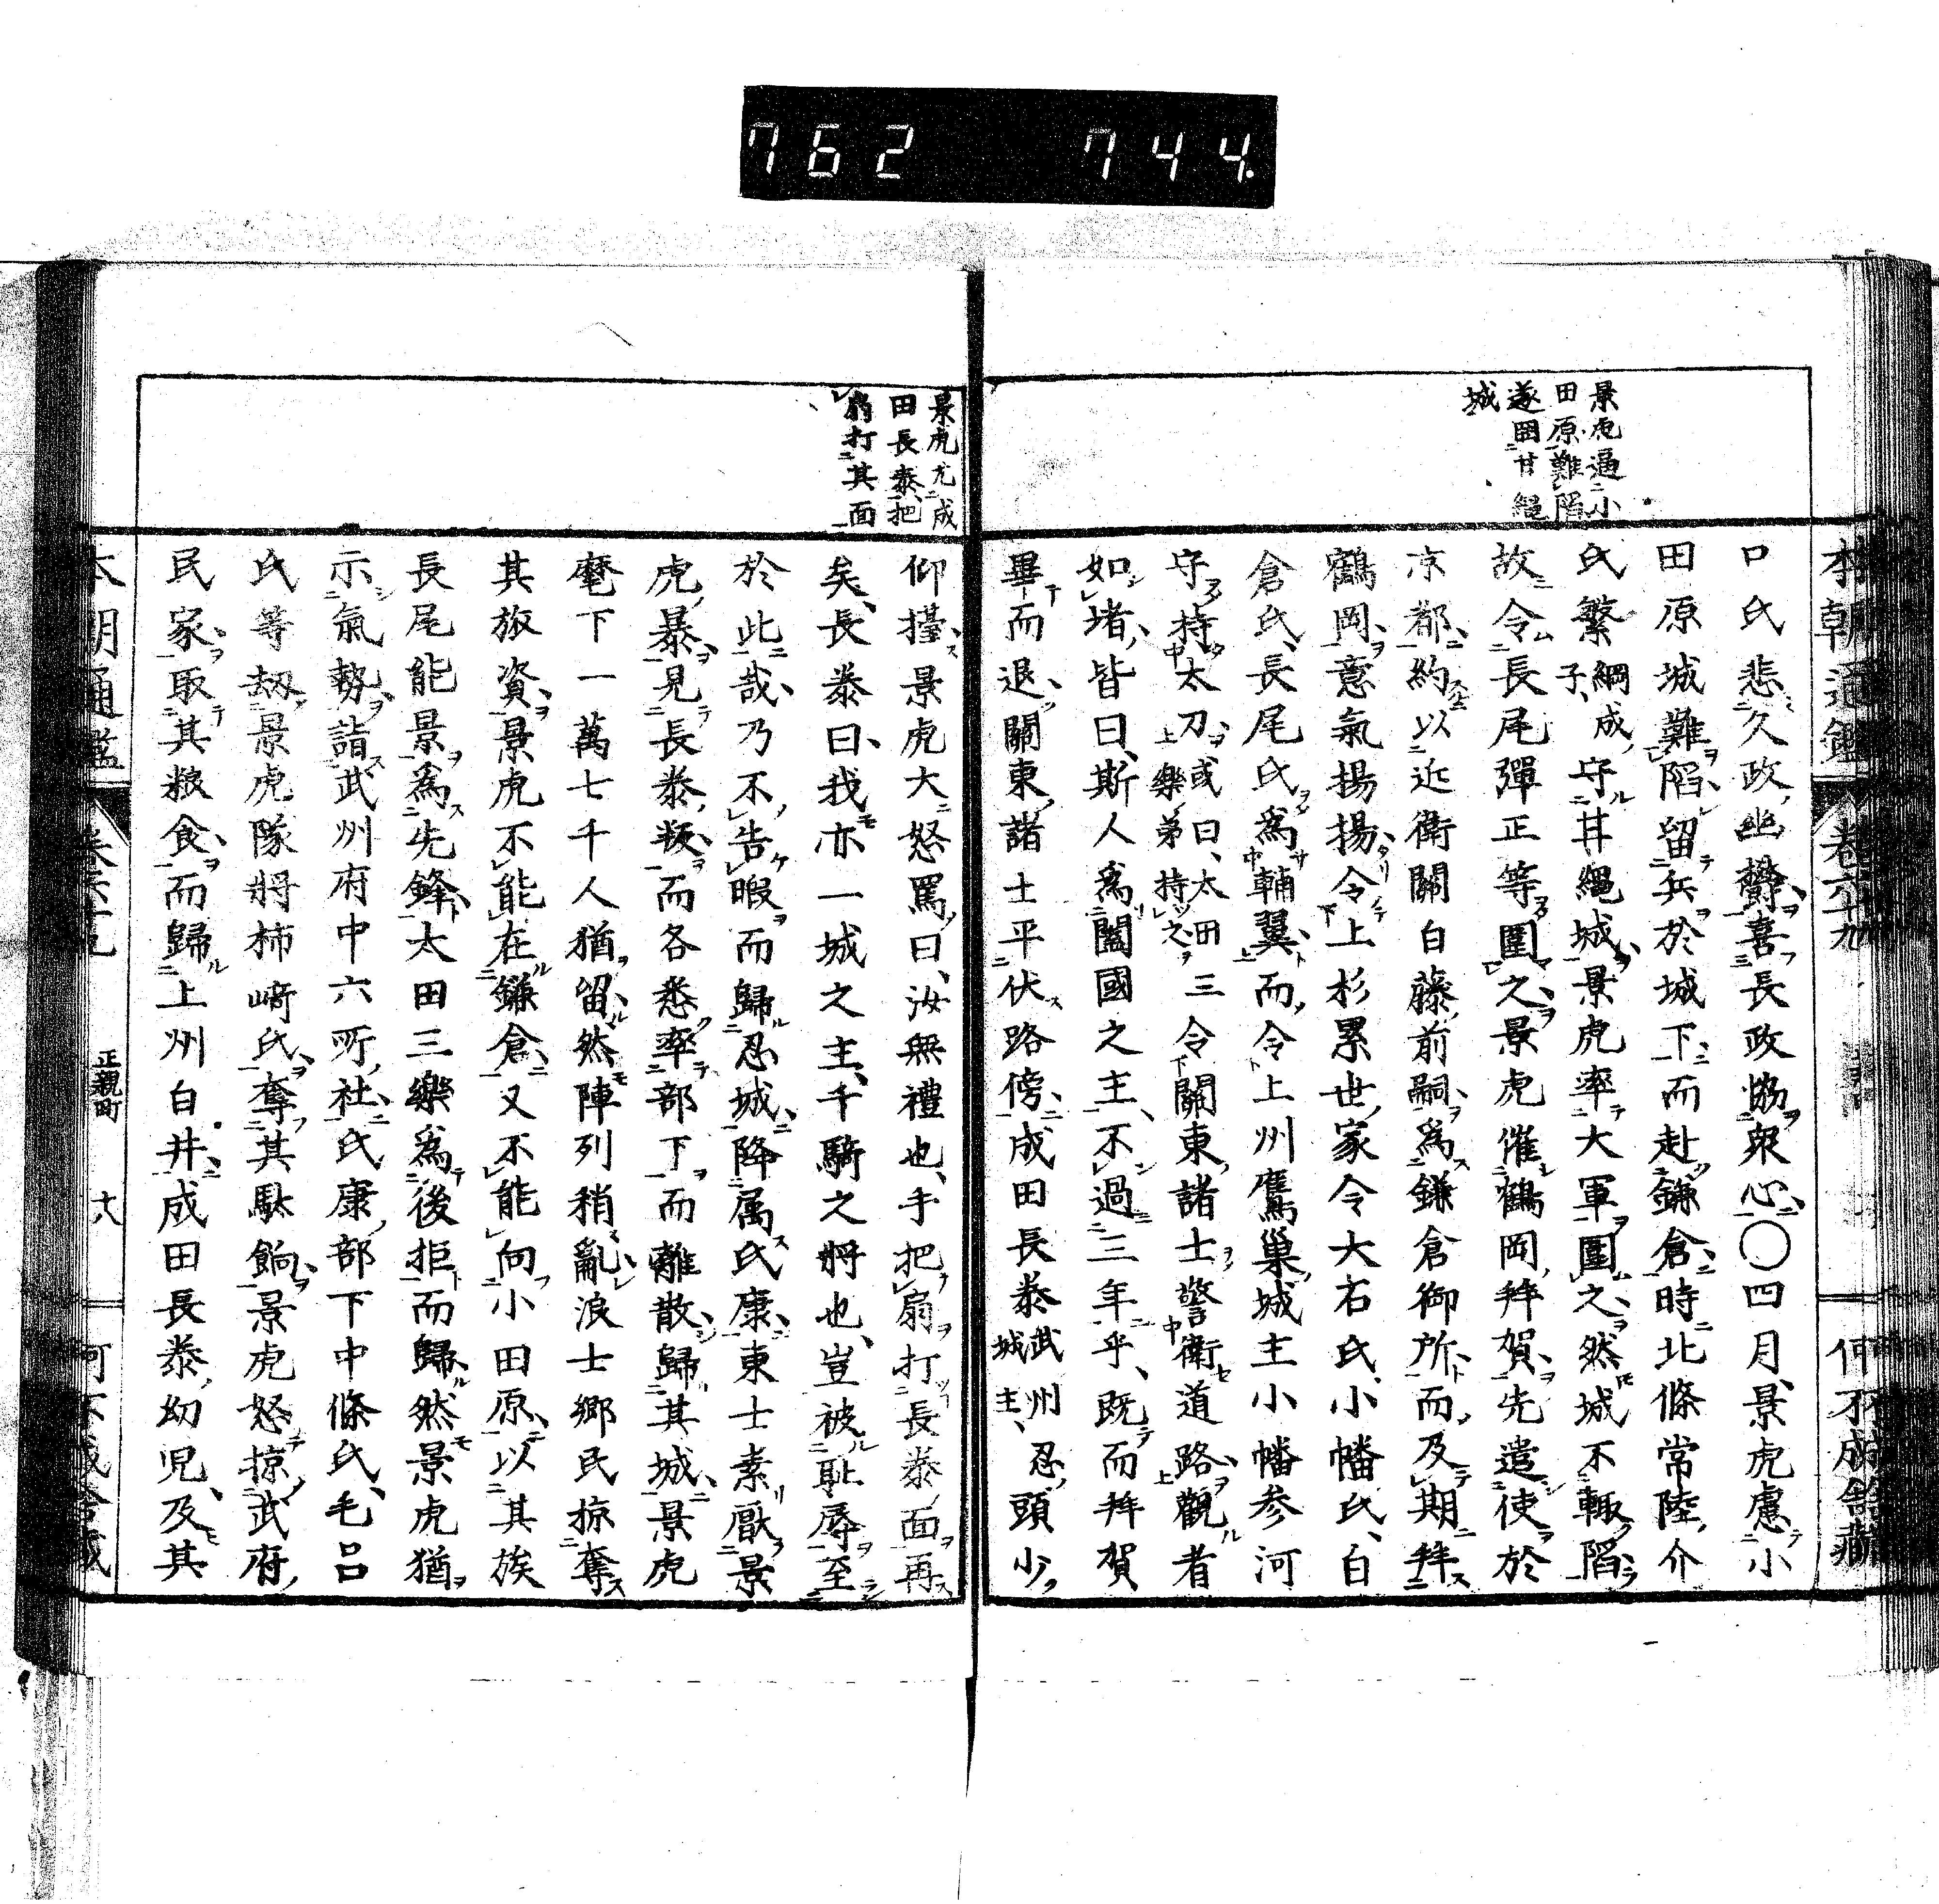 762 744.
本朝通鑑 卷六十九
景虎逼小
田原難陷
遂圍甘繩
城
口氏悲久政幽欝喜長政協衆心〇四月景虎慮小
田原城難陷留兵於城下而赴鎌倉時北條常陸介
氏繁綱成子守甘繩城景虎率大軍圍之然城不輙陷
故令長尾彈正等圍之景虎催鶴岡拜賀先遣使於
京都約以近衛關白藤前嗣爲鎌倉御所而及期拜
鶴岡意氣揚揚令上杉累世家令大石氏小幡氏白
倉氏長尾氏爲輔翼而令上州鷹巢城主小幡參河
守持太刀或曰太田三樂弟持之三令關東諸士警衛道路觀者
如堵皆曰斯人爲闔國之主不過三年乎既而拜賀
畢而退關東諸士平伏路傍成田長泰武州忍城主頭少
景虎尤成
田長泰把
扇打其面
仰擡景虎大怒罵曰汝無禮也手把扇打長泰面再
矣長泰曰我亦一城之主千騎之將也豈被耻辱至
於此哉乃不告暇而歸忍城降属氏康東士素厭景
虎暴見長泰叛而各悉率部下而離散歸其城景虎
麾下一萬七千人猶留然陣列稍亂浪士鄉民掠奪
其旅資景虎不能在鎌倉又不能向小田原以其族
長尾能景爲先鋒太田三樂爲後拒而歸然景虎猶
示氣勢詣武州府中六所社氏康部下中條氏毛呂
氏等劫景虎隊將柿﨑氏奪其駄餉景虎怒掠武府
民家取其粮食而歸上州白井成田長泰幼児及其
正親町 十八